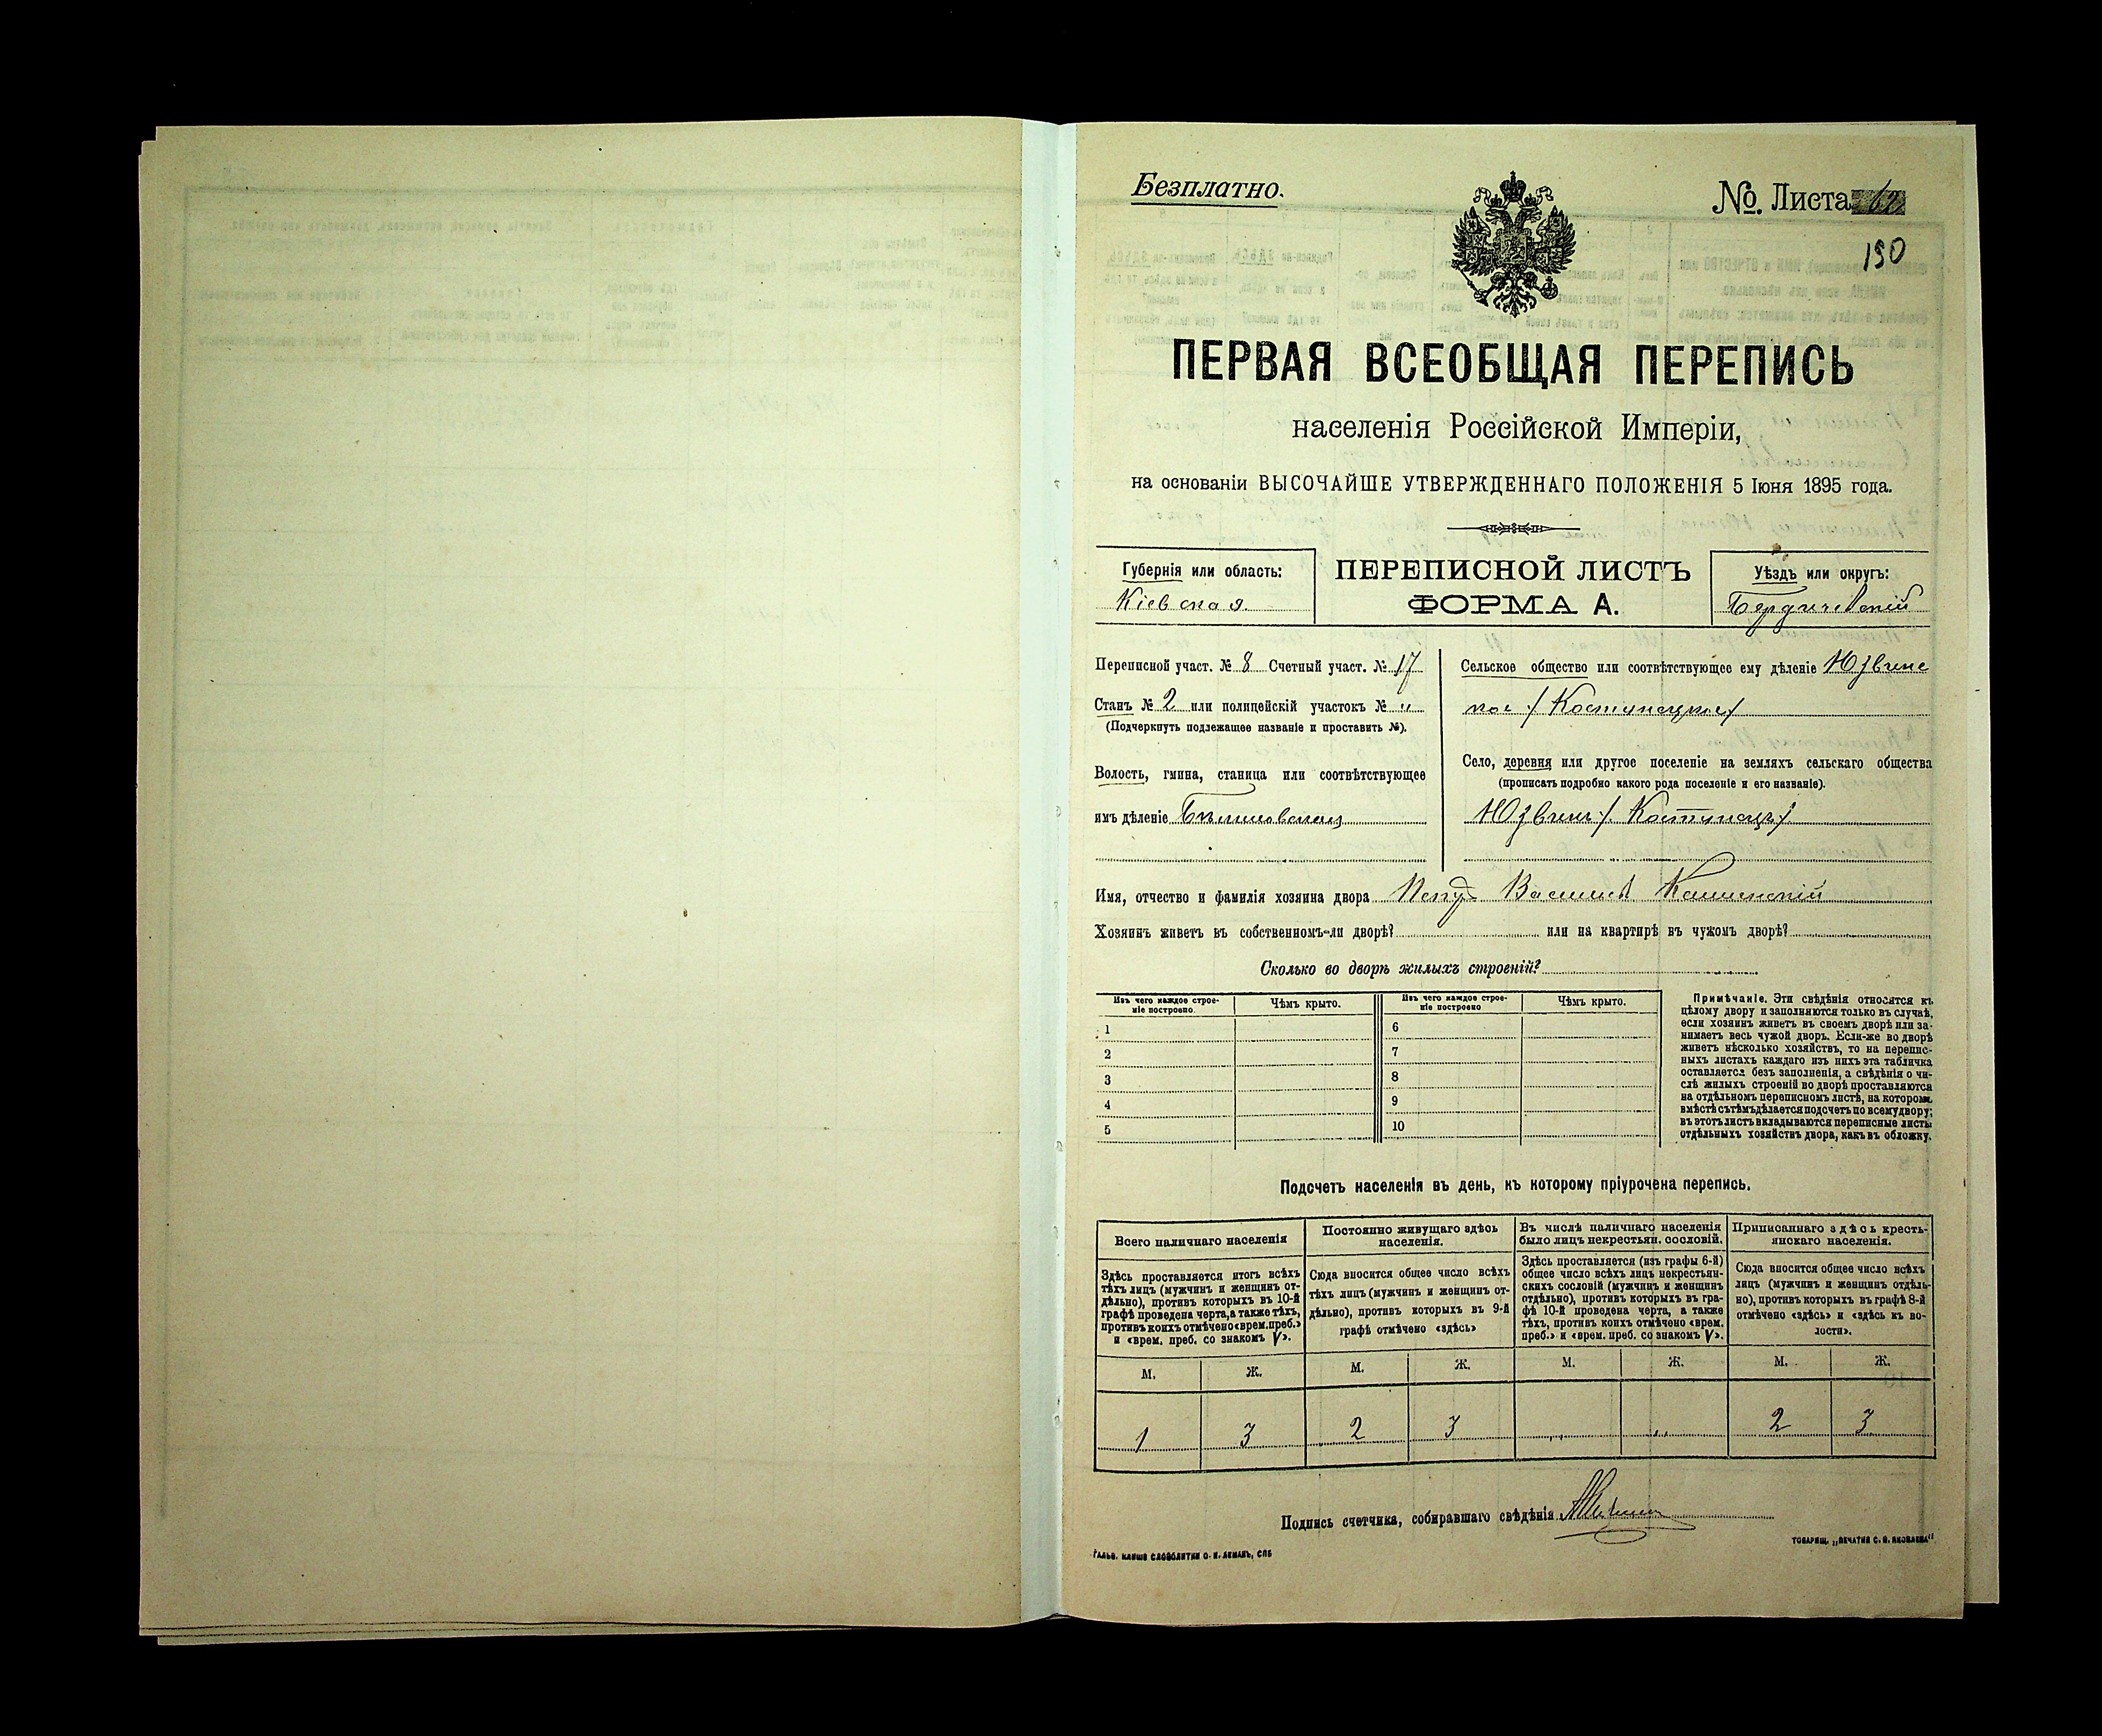 Безплатно.
№ Листа
190
ПЕРВАЯ ВСЕОБЩАЯ ПЕРЕПИСЬ
населенія Россійской Имперіи,
на основаніи ВЫСОЧАЙШЕ УТВЕРЖДЕННАГО ПОЛОЖЕНІЯ 5 Іюня 1895 года.
Губернія или область:
Кіевская
ПЕРЕПИСНОЙ ЛИСТЪ
ФОРМА А.
Уѣздъ или округъ:
Бердичевскій
Переписной участ. № 8 Счетный участ. № 17
Станъ № 2 или полицейскій участокъ № "
(Подчеркнуть подлежащее названіе и проставить №).
Волость, гмина, станица или соотвѣтствующее
имъ дѣленіе
Сельское общество или соотвѣтствующее ему дѣленіе Юзвинс
кое / Костинецкое /
Село, деревня или другое поселеніе на земляхъ сельскаго общества
(прописать подробно какого рода поселеніе и его названіе).
Юзвинъ / Костинецъ /
Имя, отчество и фамилія хозяина двора
Хозяинъ живетъ въ собственномъ-ли дворѣ? или на квартирѣ въ чужомъ дворѣ?
Сколько во дворѣ жилыхъ строеній?
Изъ чего каждое строе-
ніе построено
Чѣмъ крыто.
Изъ чего каждое строе-
ніе построено
Чѣмъ крыто.
1
2
3
4
5
6
7
8
9
10
Примѣчаніе. Эти свѣдѣнія относятся къ
цѣлому двору и заполняются только въ случаѣ,
если хозяинъ живетъ въ своемъ дворѣ или за-
нимаетъ весь чужой дворъ. Если-же во дворѣ
живетъ нѣсколько хозяйствъ, то на перепис-
ныхъ листахъ каждаго изъ нихъ эта табличка
оставляется безъ заполненія, а свѣдѣнія о чи-
слѣ жилыхъ строеній во дворѣ проставляются
на отдѣльномъ переписномъ листѣ, на которомъ
вмѣстѣ съ тѣмъ дѣлается подсчетъ по всему двору;
въ этотъ листъ вкладываются переписные листы
отдѣльныхъ хозяйствъ двора, какъ въ обложку.
Подсчетъ населенія въ день, къ которому пріурочена перепись.
Всего наличнаго населенія
Здѣсь проставляется итогъ всѣхъ
тѣхъ лицъ (мужчинъ и женщинъ от-
дѣльно), противъ которыхъ въ 10-й
графѣ проведена черта, а также тѣхъ,
противъ коихъ отмѣчено «врем. преб.»
и «врем. преб. со знакомъ V».
Постоянно живущаго здѣсь
населенія.
Сюда вносится общее число всѣхъ
тѣхъ лицъ (мужчинъ и женщинъ от-
дѣльно), противъ которыхъ въ 9-й
графѣ отмѣчено «здѣсь»
Въ числѣ наличнаго населенія
было лицъ некрестьян. сословій.
Здѣсь проставляется (изъ графы 6-й)
общее число всѣхъ лицъ некрестьян-
скихъ сословій (мужчинъ и женщинъ
отдѣльно), противъ которыхъ въ гра-
фѣ 10-й проведена черта, а также
тѣхъ, противъ коихъ отмѣчено «врем.
преб.» и «врем. преб. со знакомъ V».
Приписаннаго здѣсь кресть-
янскаго населенія.
Сюда вносится общее число всѣхъ
лицъ (мужчинъ и женщинъ отдѣль-
но), противъ которыхъ въ графѣ 8-й
отмѣчено «здѣсь» и «здѣсь къ во-
лости».
М. Ж. М. Ж. М. Ж. М. Ж.
1 3 2 3 " " 2 3
Подпись счетчика, собиравшаго свѣдѣнія
ГАЛЬВ. КЛИШЕ СЛОВОЛИТНИ О. И. ЛЕМАНЪ, СПБ
ТОВАРИЩ. „ПЕЧАТНЯ С. П. ЯКОВЛЕВА"